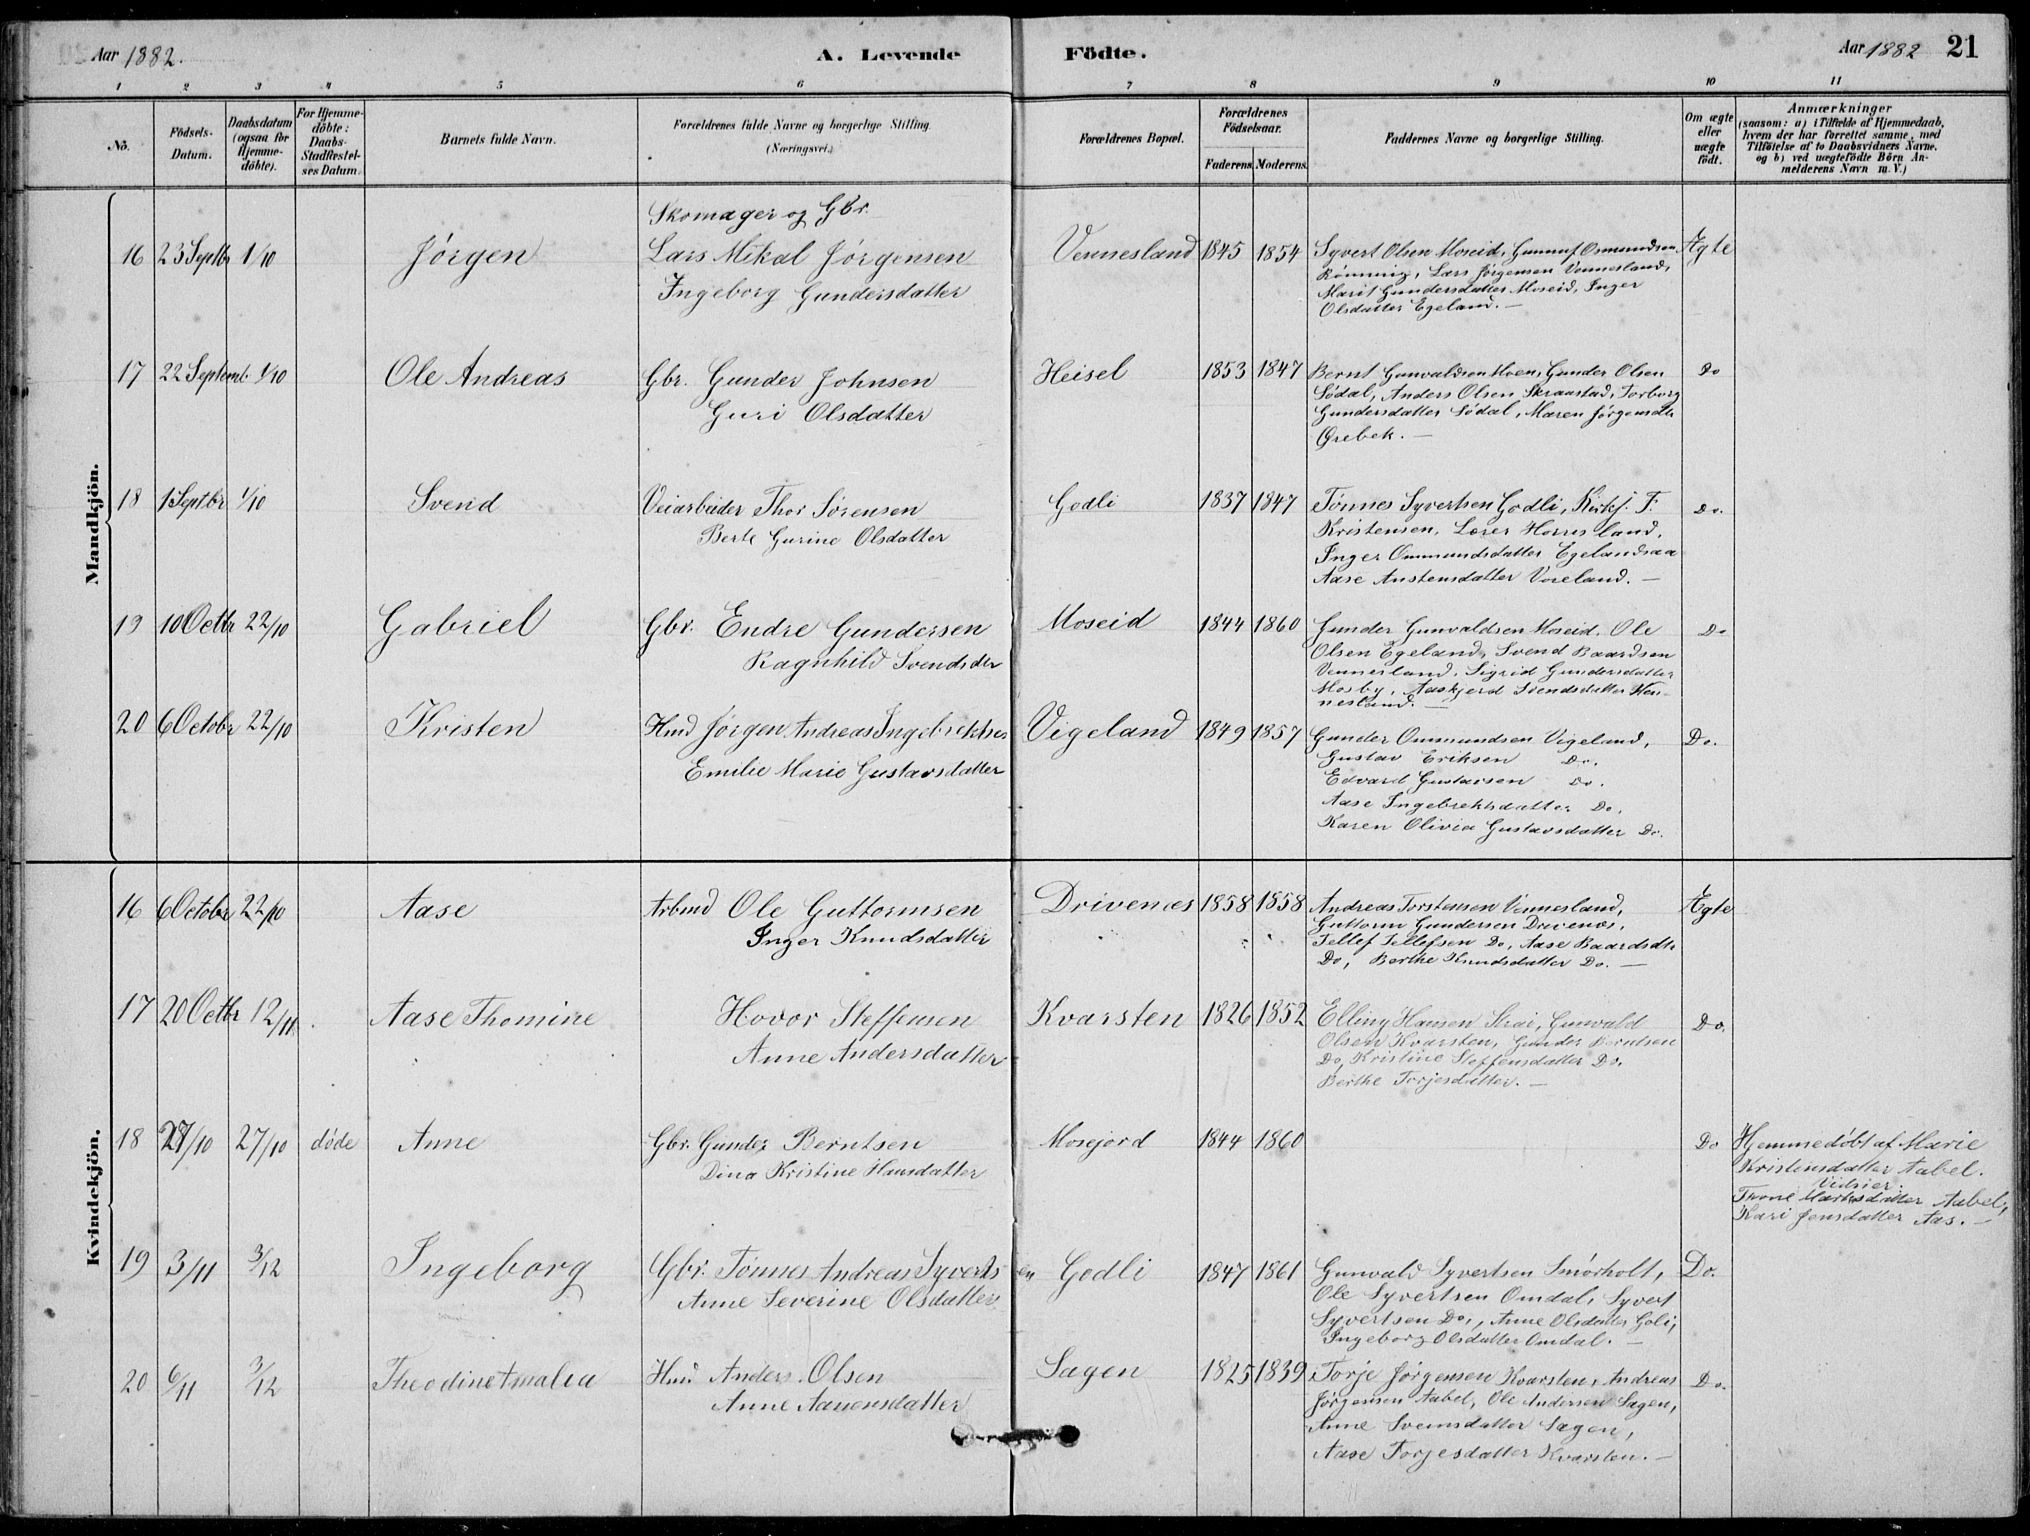 Aar 1882.
A. Levende Födte.
Aar 1882 21
1 2 3 4 5 6 7 8 9 10 11
No.
Födsels-
Datum.
Daabsdatum
(ogsaa for
Hjemme-
döbte).
For Hjemme-
döbte:
Daabs-
Stadfæstel-
ses Datum.
Barnets fulde Navn.
Forældrenes fulde Navne og borgerlige Stilling.
(Næringsvei.)
Forældrenes Bopæl.
Forældrenes
Födselsaar.
Faderens. Moderens.
Faddernes Navne og borgerlige Stilling.
Om ægte
eller
uægte
födt.
Anmærkninger
(saasom: a) i Tilfælde af Hjemmedaab,
hvem der har forrettet samme, med
Tilföielse af to Daabsvidners Navne,
og b) ved uægtefödte Börn An-
melderens Navn m. V.)
Mandkjön.
Skomager og Gbr.
16 23 Septbr 1/10 Jörgen Lars Mikal Jörgensen
Ingeborg Gundersdatter
Vennesland 1845 1854
Syvert Olsen Moseid, Gunnuf Osmundsen
Rönning, Lars Jörgensen Vennesland,
Marit Gundersdatter Moseid, Inger
Olsdatter Egeland. —
Ægte
17 22 Septemb. 1/10 Ole Andreas Gbr. Gunder Johnsen
Guri Olsdatter
Heisel 1853 1847
Bernt Gunvaldsen Moen, Gunder Olsen
Södal, Anders Olsen Skraastad, Torborg
Gundersdatter Södal, Maren Jörgensdtr
Ørebek. —
Do
18 1 Septbr 1/10 Svend Veiarbeider Thor Sörensen
Berte Gurine Olsdatter
Godli 1837 1847
Tönnes Syvertsen Godli, Kirks. T.
Kristensen, Lærer Hornesland,
Inger Ommundsdatter Egelandsaa
Aase Anstensdatter Voreland. —
Do.
19 10 Octbr 22/10 Gabriel Gbr. Endre Gundersen
Ragnhild Svendsdtr
Moseid 1844 1860
Gunder Gunvaldsen Moseid, Ole
Olsen Egeland, Svend Baardsen
Vennesland, Sigrid Gundersdatter
Mosby, Aaskjerd Svendsdatter Ven-
nesland. —
Do
20 6 Octobr 22/10 Kristen Hmd Jörgen Andreas Ingebrektsen
Emilie Marie Gustavsdatter
Vigeland 1849 1857
Gunder Ommundsen Vigeland,
Gustav Eriksen Do.
Edvard Gustavsen Do.
Aase Ingebrektsdatter Do.
Karen Olivia Gustavsdatter Do.
Do.
Kvindekjön.
16 6 Octobr 22/10 Aase Arbmd Ole Guttormsen
Inger Knudsdatter
Drivenæs 1858 1858
Andreas Torstensen Vennesland,
Guttorm Gundersen Drivenæs,
Tellef Tellefsen Do, Aase Baardsdtr
Do, Berthe Knudsdatter Do. —
Ægte
17 20 Octbr 12/11 Aase Thomine Hovor Steffensen
Anne Andersdatter
Kvarsten 1826 1852
Elling Hansen Strai, Gunvald
Olsen Kvarsten, Gunder Berntsen
Do, Kristine Steffensdatter Do.
Berthe Torjesdatter. —
Do.
18 27/10 27/10 döde Anne Gbr. Gunder Berntsen
Dina Kristine Hansdatter
Mosejord 1844 1860
Do
Hjemmedöbt af Marie
Kristensdatter Aabel.
Vidner:
Thone Markusdatter Aabel,
Kari Jensdatter Aas. —
19 3/11 3/12 Ingeborg Gbr. Tönnes Andreas Syvertsen
Anne Severine Olsdatter
Godli 1847 1861
Gunvald Syvertsen Smörholt,
Ole Syvertsen Omdal, Syvert
Syvertsen Do., Anne Olsdatter Goli,
Ingeborg Olsdatter Omdal. —
Do.
20 6/11 3/12 Theodine Amalia Hmd Anders Olsen
Anne Aanensdatter
Sagen 1825 1839
Torje Jörgensen Kvarsten, Andreas
Jörgensen Aabel, Ole Andersen Sagen,
Anne Svensdatter Sagen,
Aase Torjesdatter Kvarsten. —
Do.